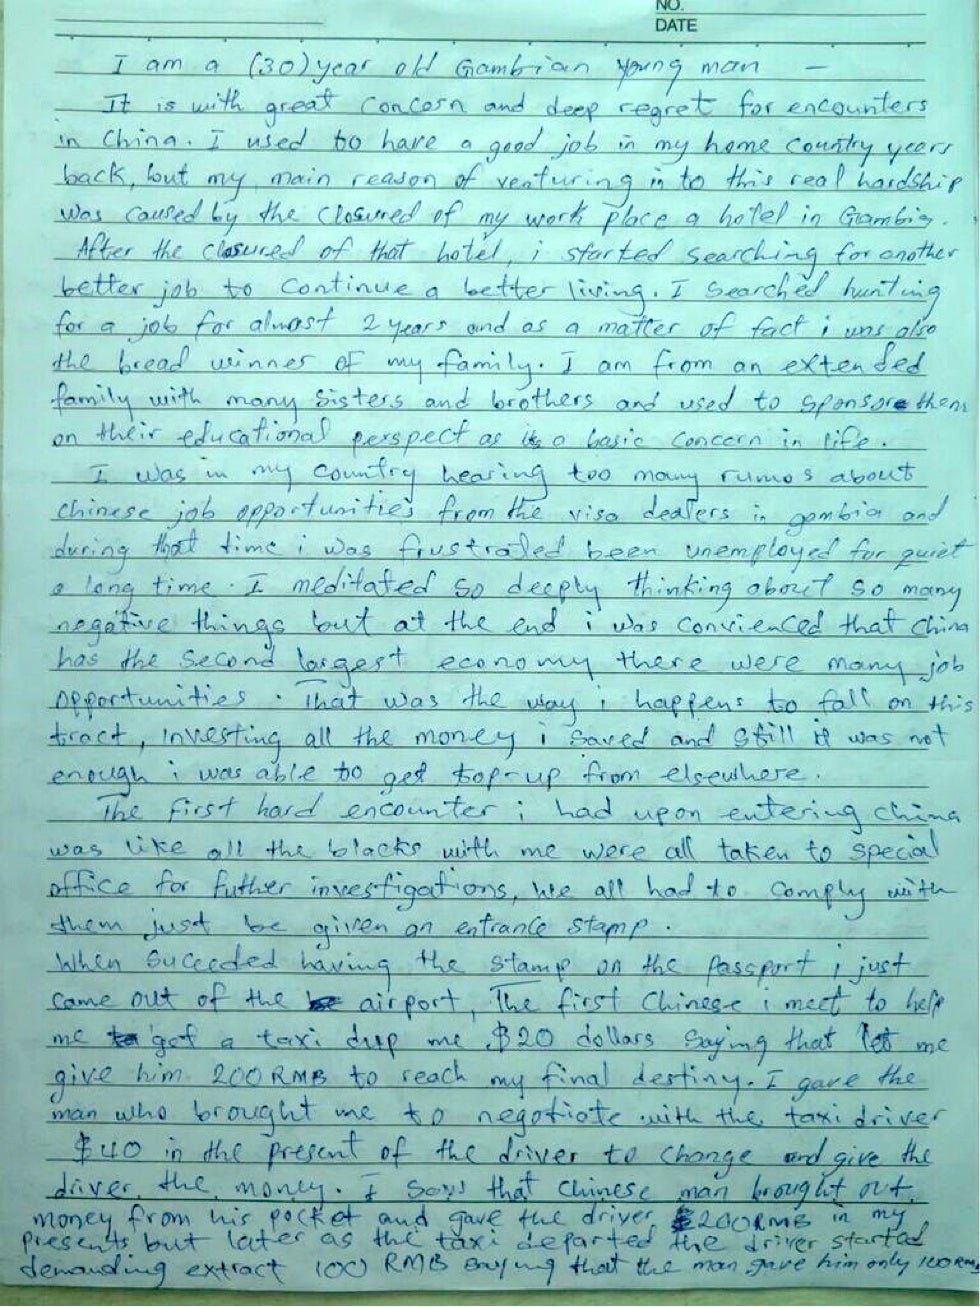 NO.
DATE
I am a (30) year old Gambian young man —
It is with great concern and deep regret for encounters
in China. I used to have a good job in my home country years
back, but my main reason of venturing in to this real hardship
was caused by the closured of my work place a hotel in Gambia.
After the closured of that hotel, i started searching for another
better job to continue a better living. I searched hunting
for a job for almost 2 years and as a matter of fact i was also
the bread winner of my family. I am from an extended
family with many sisters and brothers and used to sponsore them
on their educational perspect as is a basic concern in life.
I was in my country hearing too many rumos about
chinese job opportunities from the visa dealers in gambia and
during that time i was frustrated been unemployed for quiet
a long time. I meditated so deeply thinking about so many
negative things but at the end i was convienced that China
has the second largest economy there were many job
opportunities. That was the way i happens to fall on this
tract, investing all the money i saved and still it was not
enough i was able to get top-up from elsewhere.
The first hard encounter i had upon entering china
was like all the blacks with me were all taken to special
office for futher investigations, we all had to comply with
them just be given an entrance stamp.
When suceeded having the stamp on the passport i just
came out of the airport, The first Chinese i meet to help
me get a taxi dup me $20 dollars saying that let me
give him 200 RMB to reach my final destiny. I gave the
man who brought me to negotiate with the taxi driver
$40 in the present of the driver to change and give the
driver the money. I says that chinese man brought out
money from his pocket and gave the driver 200RMB in my
presents but later as the taxi departed the driver started
demanding extract 100 RMB saying that the man gave him only 100RMB